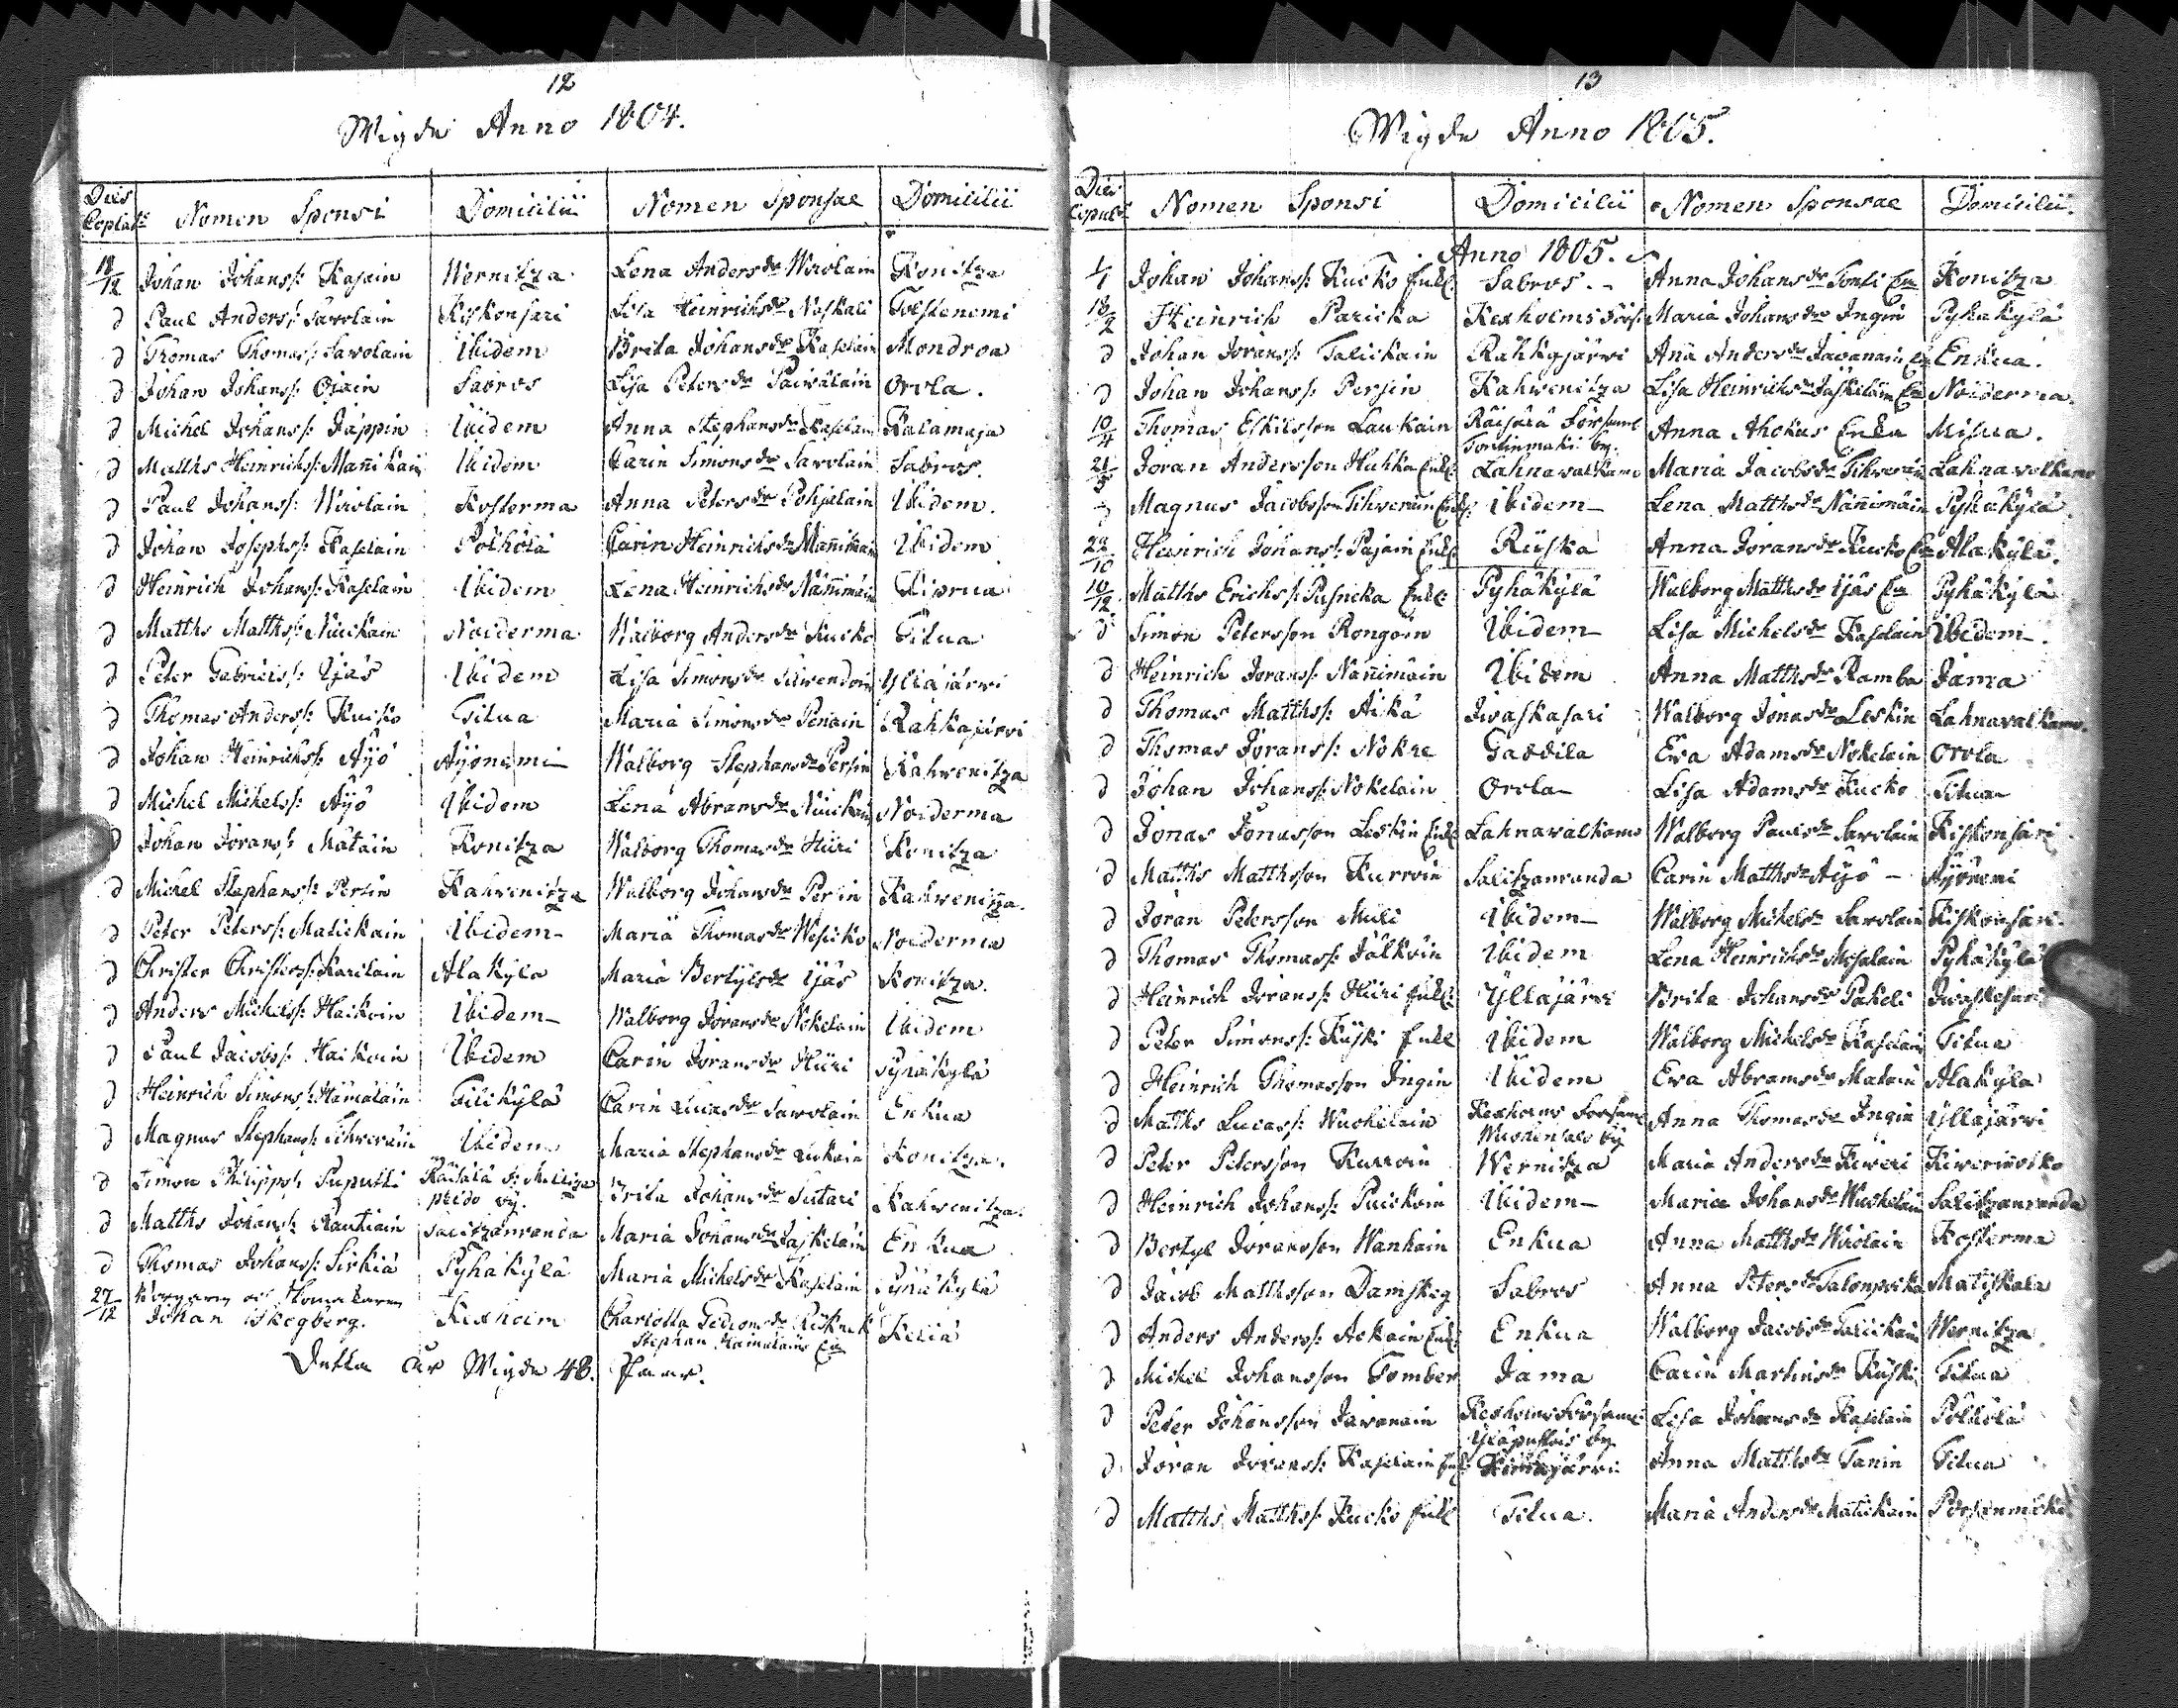 12
Wigde Anno 1804.
Dies Coplat: Nomen Sponsi Domicilii Nomen Sponsae Domicilii
18/12 Johan Johanss: Kasain Wernitza Lena Andersdr Wirolain Konitza
d Paul Anderss: Sawolain Kiskonsari Lisa Heinrichsdr Noskali
d Thomas Thomass: Sawolain Ibidem Brita Johansdr Kaselain Mondroa
d Johan Johanss: Ojain Sabros Lisa Petersdr Paiwälain Orola.
d Michel Johanss: Jäppin Ibidem Anna Stephansdr Kaselain Kalamaja
d Matths Heinrichss: Mañikain Ibidem Carin Simonsdr Sawolain Sabros.
d Paul Johanss: Wirolain Kosterma Anna Petersdr Pohjalain Ibidem.
d Johan Josephss: Kaselain Pölhölä Carin Heinrichsdr Mañinain Ibidem
d Heinrich Johanss: Kaselain Ibidem Lena Heinrichsdr Näñimäin
d Matths Matthss: Nuickain Noiderma Walborg Andersdr Kucko Titua
d Peter Gabrielss: Ijäs Ibidem Lisa Simonsdr Siiwendoin Yläjärwi
d Thomas Anderss: Kucko Titua Maria Simonsdr Penain Rahkajärwi
d Johan Heinrichss: Äyö Äyönemi Walborg Stephansdr Persin Kahwenitza
d Michel Michelss: Äyö Ibidem Lena Abramsdr Nuickain Noiderma
d Johan Jöranss: Matain Konitza Walborg Thomasdr Hiiri Konitza
d Michel Stephanss: Persin Kahwenitza Walborg Johansdr Persin Kahwenitza.
d Peter Peterss: Matickain Ibidem Maria Thomasdr Wesicko Noiderma
d Christer Christerss: Karilain Alakylä Maria Bertilsdr Ijäs Konitza.
d Anders Michelss: Haikoin Ibidem Walborg Jöransdr Nokelain Ibidem
d Paul Jacobss: Haikoin Ibidem Carin Jöransdr Hiiri Pyhäkylä
d Heinrich Simonss: Hämäläin Tilikylä Carin Lucasdr Sawolain Enkua
d Magnus Stephanss: Tihweräin Ibidem Maria Stephansdr Luckain Konitza.
d Simon Philippss: Puputti Räisälä S: by. Brita Johansdr Sutari Kahwenitza
d Matths Johanss: Rautiain Salitzanranda Maria Johansdr Jäskeläin Enkua
d Thomas Johanss: Sirkiä Pyhäkylä Maria Michelsdr Kaselain Pyhäkylä
27/12 Johan Skogberg. Kexholm Charlotta Kelia
Stephan Hämäläins Ea
Detta år Wigde 48. Paar.
13
Wigde Anno 1805.
Dies Copul: Nomen Sponsi Domicilii Nomen Sponsae Domicilii
Anno 1805.
1/1 Johan Johanss: Kucko Enkl: Sabros. Anna Johansdr Tonti Ea Konitza
18/2 Heinrich Paricka Kexholms Förs: Maria Johansdr Ingin Pyhäkylä
d Johan Jöranss: Talickain Rähkyjärwi Aña Andersdr Jawanain Ea Enkua.
d Johan Johanss: Persin Kahwenitza Lisa Heinrichsdr Jäskeläin Ea Noiderma.
10/4 Thomas Eskilsson Laukain Räisälä Församl by. Anna Ahokas Enka Misua.
21/5 Jöran Andersson Huhka Enkl: Lahnawalkama Maria Jacobsdr Tihweräin Lahnawalkama
d Magnus Jacobsson Tihweräin Enkl: Ibidem Lena Matthsdr Näñimäin Pyhäkylä.
29/10 Heinrich Johanss: Pajain Enkl: Riiska Anna Jöransdr Kucko Ea Alakylä.
18/12 Matths Erichss: Pusnicka Enkl: Pyhäkylä Walborg Matthsdr Ijäs Ea Pyhäkylä
d Simon Petersson Rongoin Ibidem Lisa Michelsdr Kaselain Ibidem.
d Heinrich Jöranss: Näñimäin Ibidem Anna Matthsdr Ramba Jama
d Thomas Matthss: Äikä Iwaskasari Walborg Jonasdr Leskin Lahnawalkama.
d Thomas Jöranss: Nokre Gaddila Ewa Adamsdr Nokelain Orola
d Johan Johanss: Nokelain Orola Lisa Adamsdr Kucko Titua
d Jonas Jonasson Leskin Enkl: Lahnawalkama Walborg Paulsdr Sawolain Kiskonsari
d Matths Matthsson Kurroin Salitzanranda Carin Matthsdr Äyö Äyönemi
d Jöran Petersson Muli Ibidem Walborg Michelsdr Sawolain Kiskonsari.
d Thomas Thomass: Jälköin Ibidem Lena Heinrichsdr Mesalain Pyhäkylä
d Heinrich Jöranss: Hiiri Enkl: Ylläjärwi Brita Johansdr Pakeli Iwaskasari
d Peter Simonss: Kiiski Enkl Ibidem Walborg Michelsdr Kaselain Titua
d Heinrich Thomasson Ingin Ibidem Ewa Abramsdr Matain Alakylä
d Matths Lucass: Wuohelain Kexholms Församl by Anna Thomasdr Ingin Ylläjärwi
d Peter Petersson Kurroin Wernitza Maria Andersdr Kiweri
d Heinrich Johanss: Puickoin Ibidem Maria Johansdr Wuohelain Salitzanranda
d Bertyl Jöransson Wanhain Enkua Anna Matthsdr Wirolain Kosterma
d Jacob Matthsson Damskeg Sabros Anna Petersdr Talonpoika Matiskala
d Anders Anderss: Ackain Enkl: Enkua Walborg Jacobsdr Talickain Wernitza
d Michel Johansson Tomber Jama Carin Martinsdr Kiiski Titua
d Peter Johansson Jawanain Kexholms Församl: by Lisa Johansdr Kaselain Pölhölä
d Jöran Jöranss: Kaselain Enkl: Anna Matthsdr Tanin Titua
d Matths Matthss: Kucko Enkl Titua. Maria Andersdr Matickain